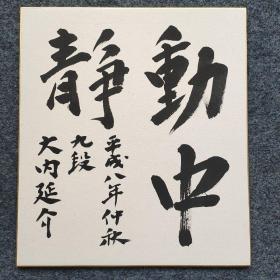 動中
静
平成八年仲秋
九段
大内延介